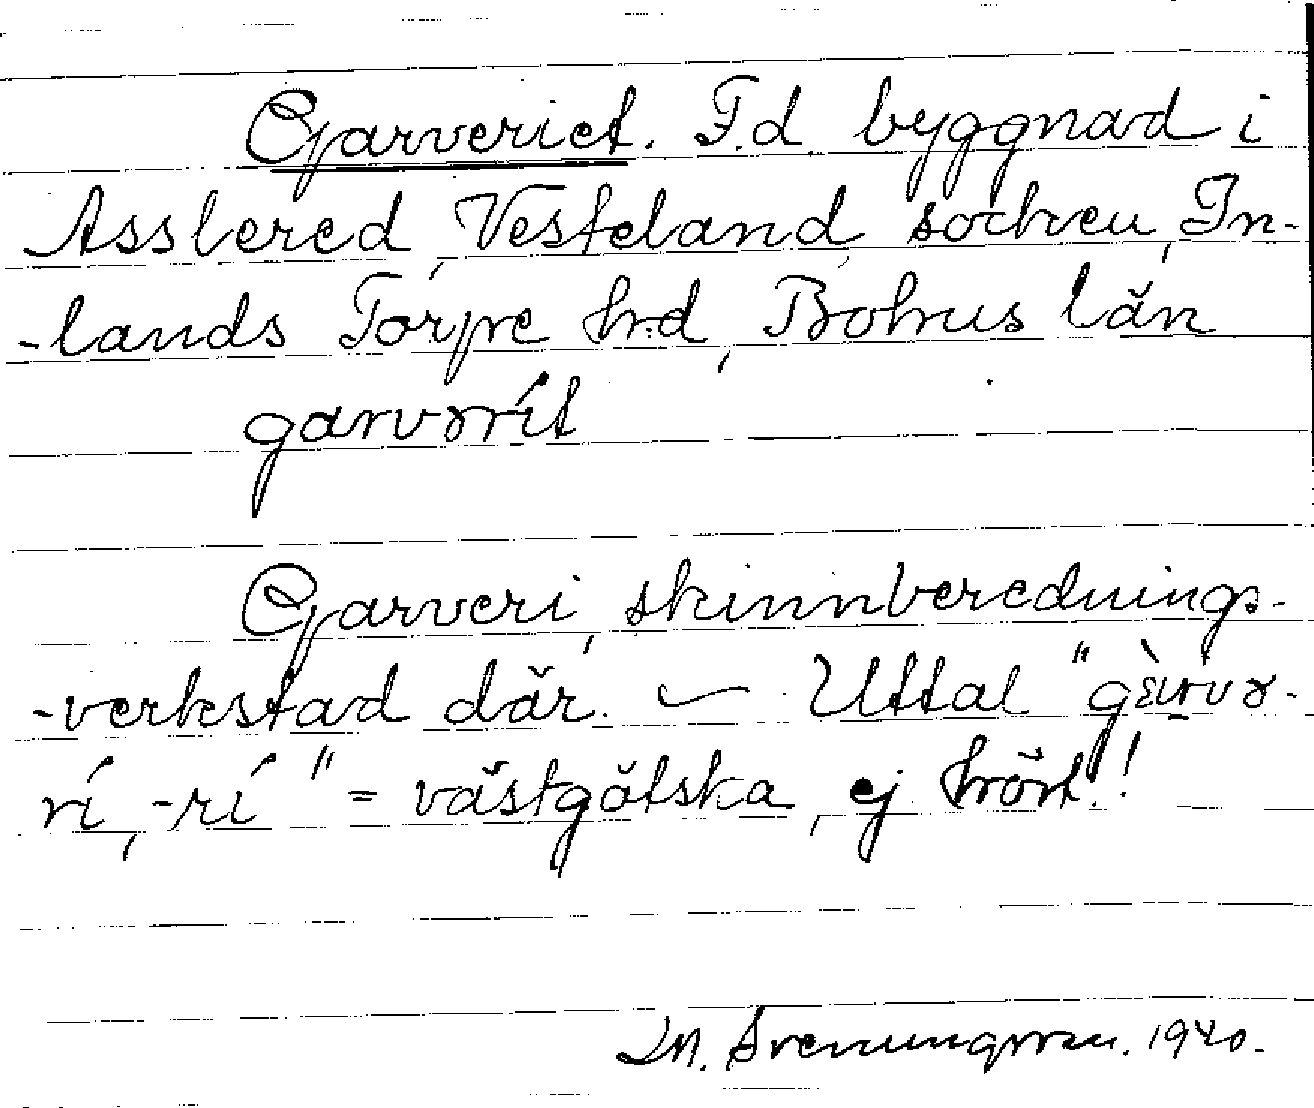 Garveriet. F.d byggnad i
Asslered, Vesteland, socken, In-
-lands Torpe hrd, Bohus län
garvərít
Garveri, skinnberednings-
-verkstad där. — Uttal "
rí, -rí" = västgötska, ej hört!
M. Svenungsson. 1940.